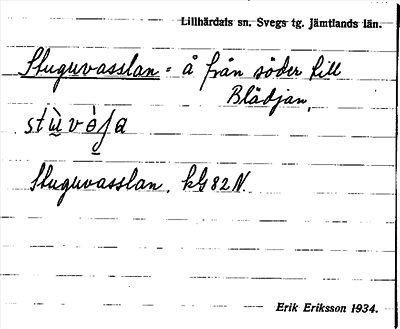 Lillhärdals sn. Svegs tg. Jämtlands län.
Stuguvasslan = å från söder till
Blädjan.
Stuguvasslan. kG 82 N.
Erik Eriksson 1934.